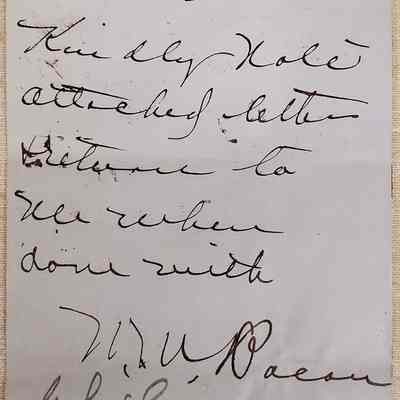 Kindly Note
attached letter
return to
me when
done with
Bacon